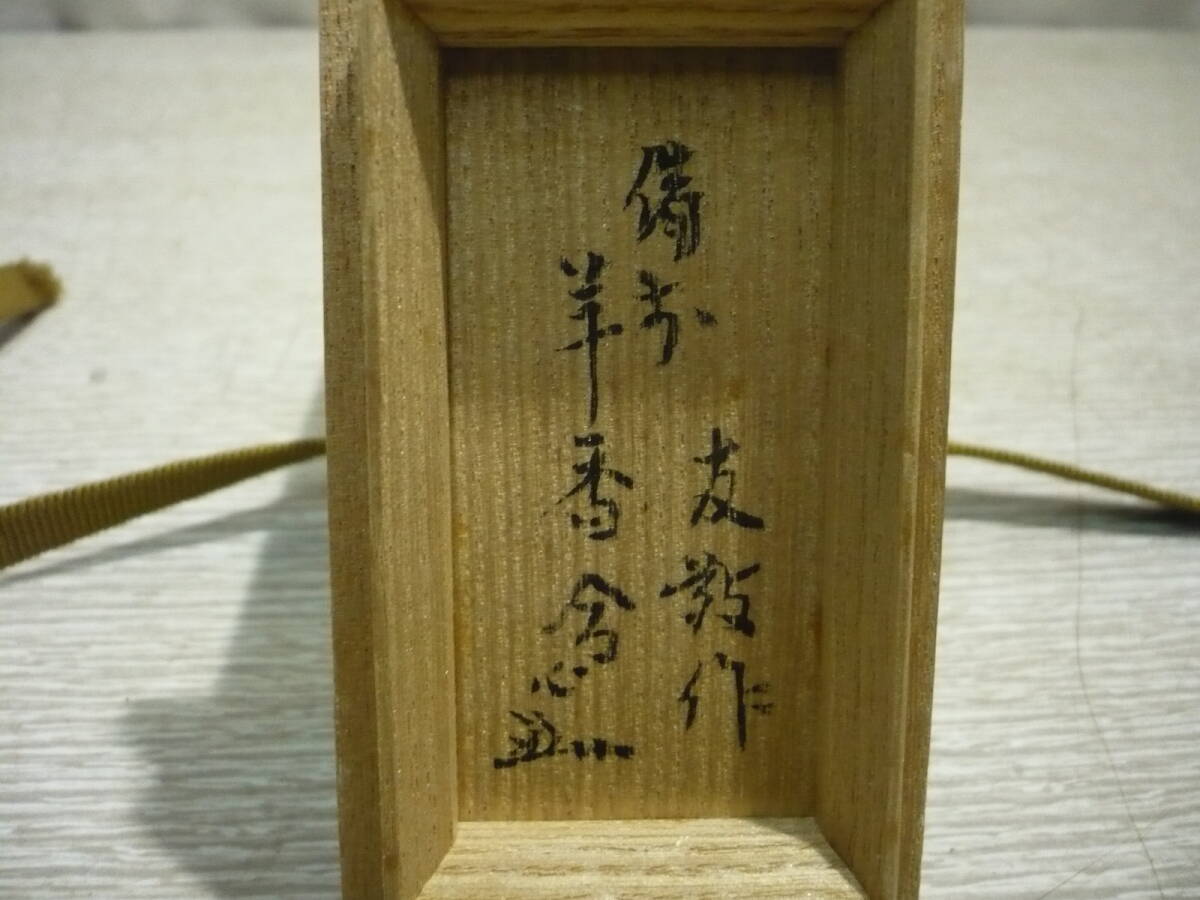 備前
友 作
羊香合